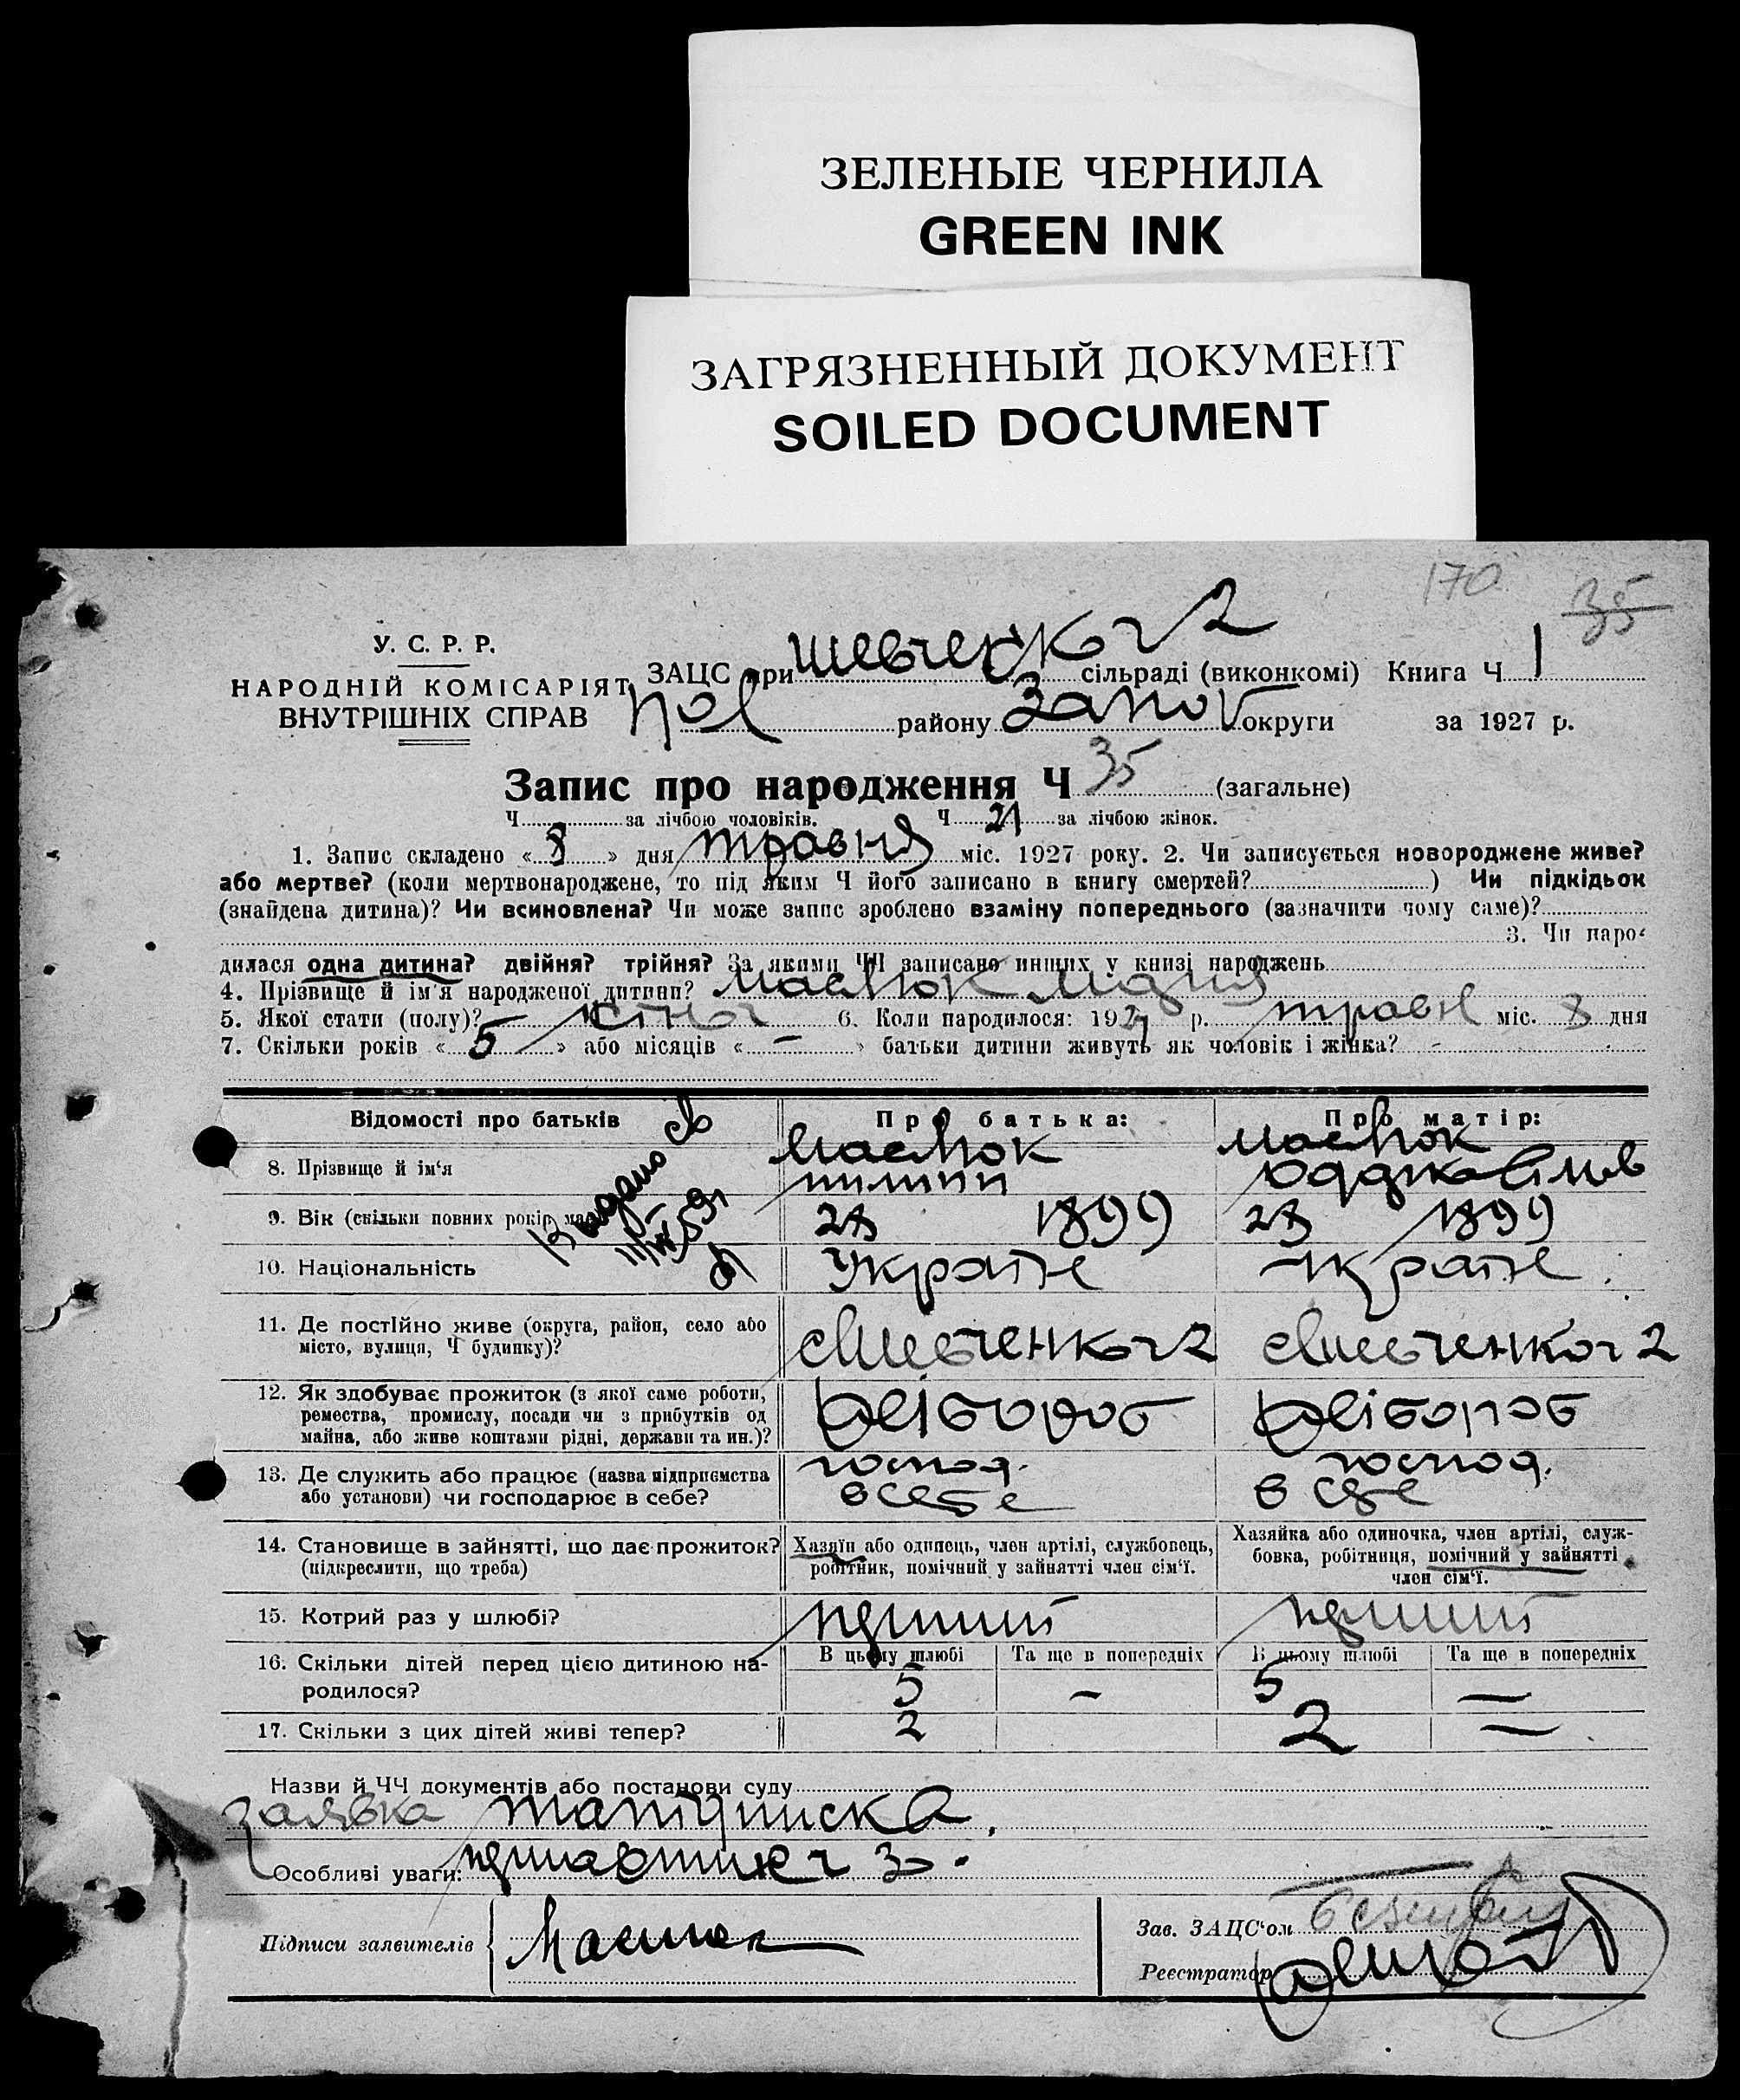 ЗЕЛЕНЫЕ ЧЕРНИЛА
GREEN INK
ЗАГРЯЗНЕННЫЙ ДОКУМЕНТ
SOILED DOCUMENT
170
35
У. С. Р. Р.
НАРОДНІЙ КОМІСАРІЯТ
ВНУТРІШНІХ СПРАВ
ЗАЦС при Шевченко 2 сільраді (виконкомі) Книга Ч 1
Пол району Запоў округи за 1927 р.
Запис про народження Ч 35 (загальне)
Ч за лічбою чоловіків. Ч 21 за лічбою жінок.
1. Запис складено « 8 » дня травня міс. 1927 року. 2. Чи записується новороджене живе?
або мертве? (коли мертвонароджене, то під яким Ч його записано в книгу смертей? ) Чи підкідьок
(знайдена дитина)? Чи всиновлена? Чи може запис зроблено взаміну попереднього (зазначити чому саме)?
3. Чи наро-
дилася одна дитина? двійня? трійня? За якими ЧЧ записано инших у книзі народжень
4. Прізвище й ім'я народженої дитини? Маслюк
5. Якої статі (полу)? 6. Коли народилося: 1927 р. травн міс. 8 дня
7. Скільки років « 5 » або місяців « – » батьки дитини живуть як чоловік і жінка? -
Відомості про батьків Про батька: Про матір:
8. Прізвище й ім'я Маслюк Маслюк
пилипп
Видано св
9. Вік (скільки повних років має) 28 1899 28 1899
10. Національність Україне україне
11. Де постійно живе (округа, район, село або
місто, вулиця, Ч будинку)? с Шевченко 2 с Шевченко 2
12. Як здобуває прожиток (з якої саме роботи,
ремества, промислу, посади чи з прибутків од
майна, або живе коштами рідні, держави та ин.)? хлібороб хлібороб
13. Де служить або працює (назва підприємства
або установи) чи господарює в себе? господ. в себе господ. в себе
14. Становище в зайнятті, що дає прожиток?
(підкреслити, що треба)
Хазяїн або одинець, член артілі, службовець,
робітник, помічний у зайнятті член сім'ї.
Хазяйка або одиночка, член артілі, служ-
бовка, робітниця, помічний у зайнятті
член сім'ї.
15. Котрий раз у шлюбі? перший перший
В цьому шлюбі Та ще в попередніх В цьому шлюбі Та ще в попередніх
16. Скільки дітей перед цією дитиною на-
родилося? 5 – 5 –
17. Скільки з цих дітей живі тепер? 2 2 –
Назви й ЧЧ документів або постанови суду
заявка та підписка.
Особливі уваги:
Підписи заявителів Маслюк
Зав. ЗАЦС'ом
Реєстратор